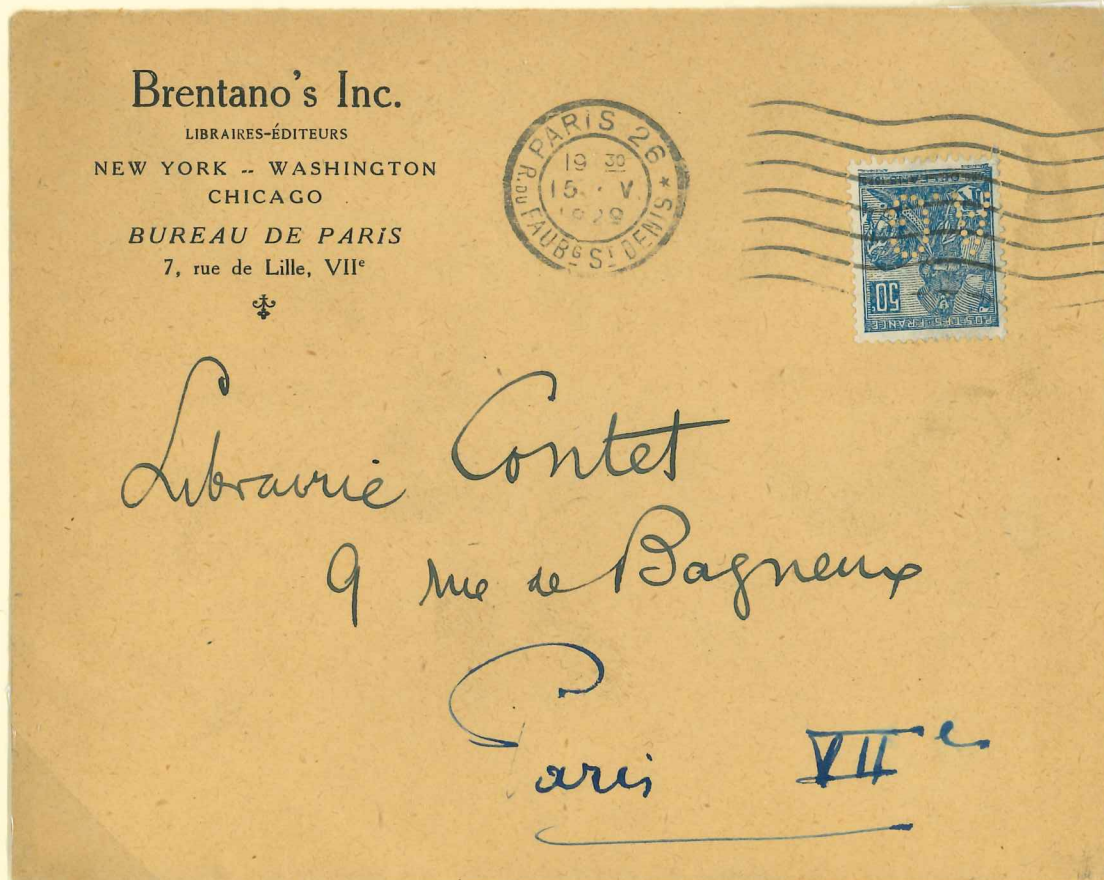 Brentano's Inc.
LIBRAIRES-ÉDITEURS
NEW YORK -- WASHINGTON
CHICAGO
BUREAU DE PARIS
7, rue de Lille, VIIe
PARIS 26
R. DU FAUBG ST DENIS *
19 30
15 V
1929
50c
POSTES FRANCE
Librairie Contet
9 rue de Bagneux
Paris VIIe